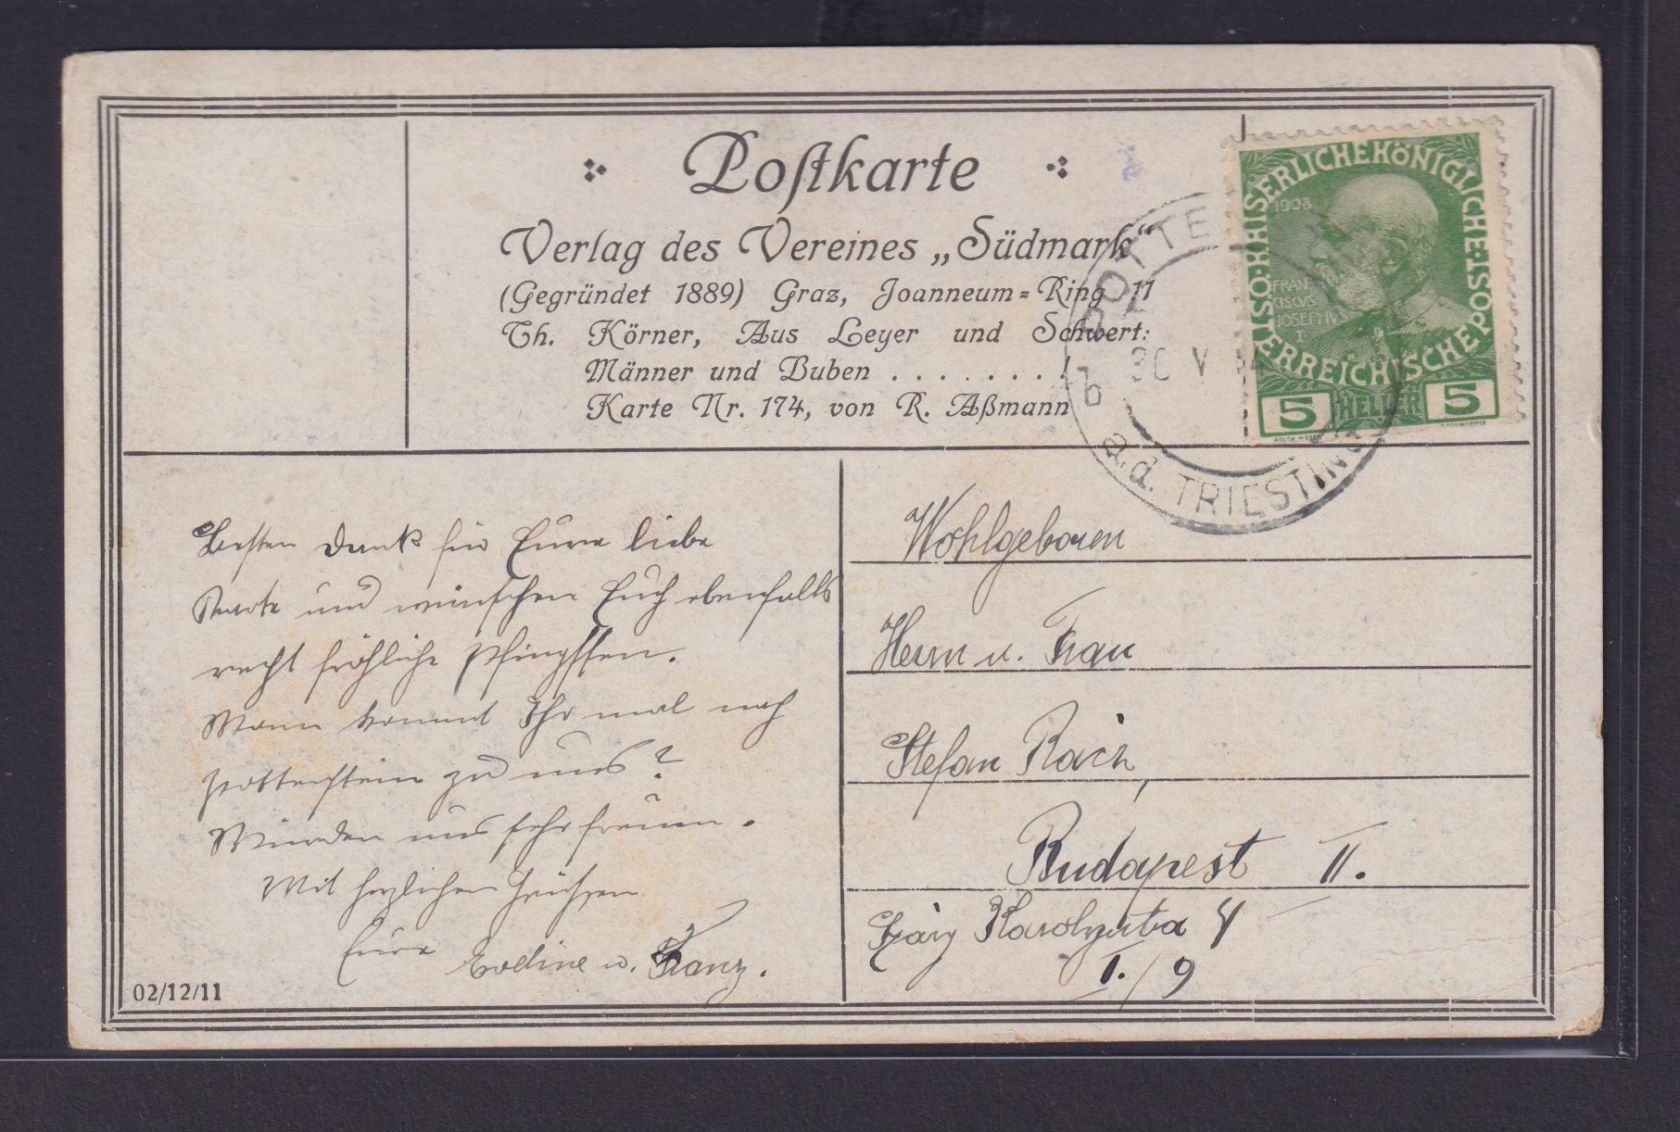 Postkarte
Verlag des Vereines „Südmark“
(Gegründet 1889) Graz, Joanneum=Ring 11
Th. Körner, Aus Leyer und Schwert:
Männer und Buben . . . . . . . . !
Karte Nr. 174, von R. Aßmann
KAISERLICHE KÖNIGLICHE ÖSTERREICHISCHE POST
1908
FRAN
CISCUS
JOSEPHVS
I.
5 HELLER 5
POTTE
30 V 14
b
a.d. TRIESTING
Besten Dank für Eure liebe
Karte und wünschen Euch ebenfalls
recht fröhliche Pfingsten.
Wann kommt Ihr mal nach
Pottenstein zu uns?
Würden uns sehr freuen.
Mit herzlichen Grüßen
Eure Eveline u. Franz.
02/12/11
Wohlgeboren
Herrn u. Frau
Stefan
Budapest II.
I./9